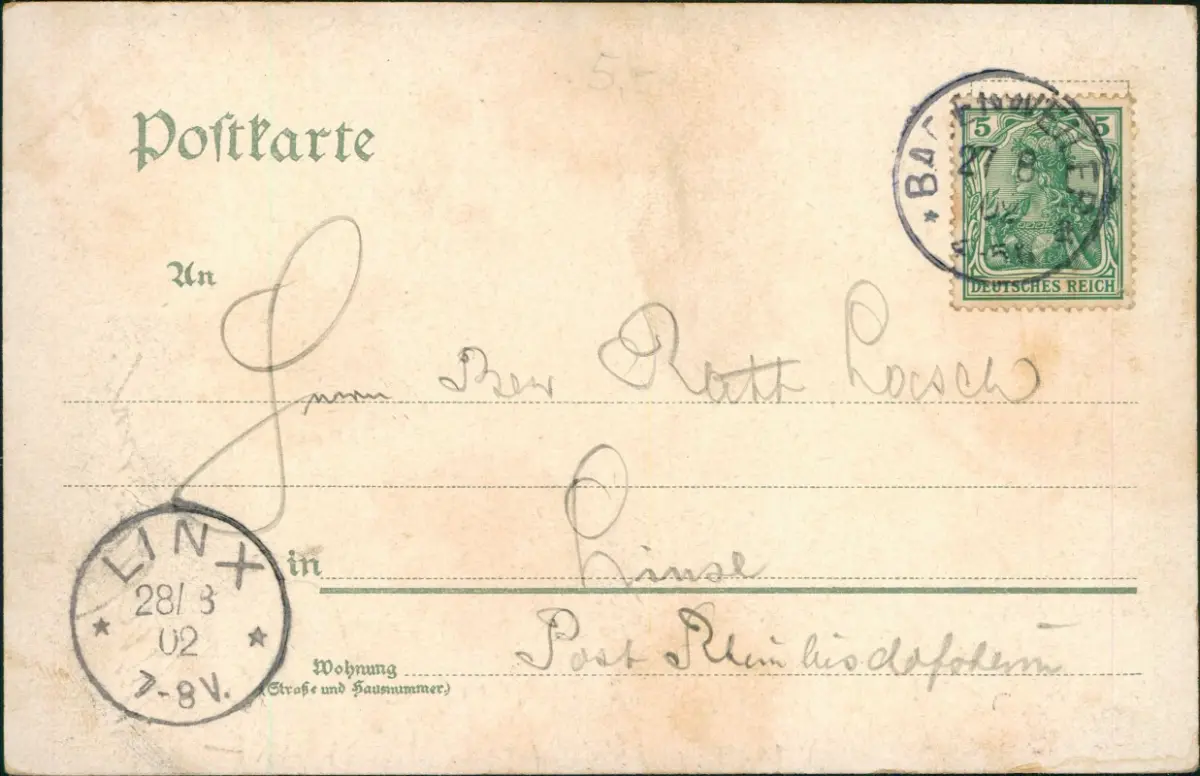 5.-
Postkarte
BADENWEILER
27 8
02
5 5
DEUTSCHES REICH
An
Herrn Rath Loesch
in Linse
Post Rheinbischofsheim
Wohnung
(Straße und Hausnummer.)
LINX
28/8
02
7-8V.